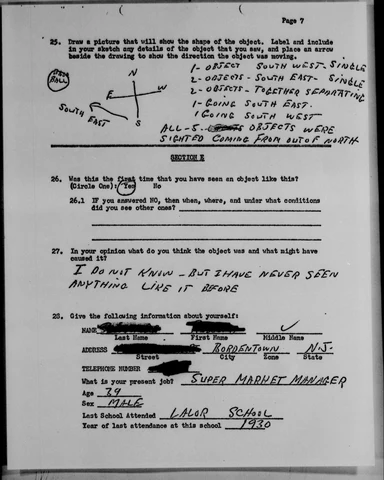 Page 7
25. Draw a picture that will show the shape of the object. Label and include
in your sketch any details of the object that you saw, and place an arrow
beside the drawing to show the direction the object was moving.
1- OBJECT SOUTH WEST- SINGLE
2- OBJECTS- SOUTH EAST- SINGLE
2- OBJECTS- TOGETHER SEPARATING
1- GOING SOUTH EAST.
1 GOING SOUTH WEST
ALL-5 OBJECTS WERE
SIGHTED COMING FROM OUT OF NORTH
BALL
N
E
W
S
SOUTH EAST
SECTION E
26. Was this the first time that you have seen an object like this?
(Circle One): Yes No
26.1 IF you answered NO, then when, where, and under what conditions
did you see other ones?
27. In your opinion what do you think the object was and what might have
caused it?
I DO NOT KNOW - BUT I HAVE NEVER SEEN
ANYTHING LIKE IT BEFORE
28. Give the following information about yourself:
NAME
Last Name First Name Middle Name
ADDRESS BORDENTOWN N.J.
Street City Zone State
TELEPHONE NUMBER
What is your present job? SUPER MARKET MANAGER
Age 39
Sex MALE
Last School Attended LALOR SCHOOL
Year of last attendance at this school 1930